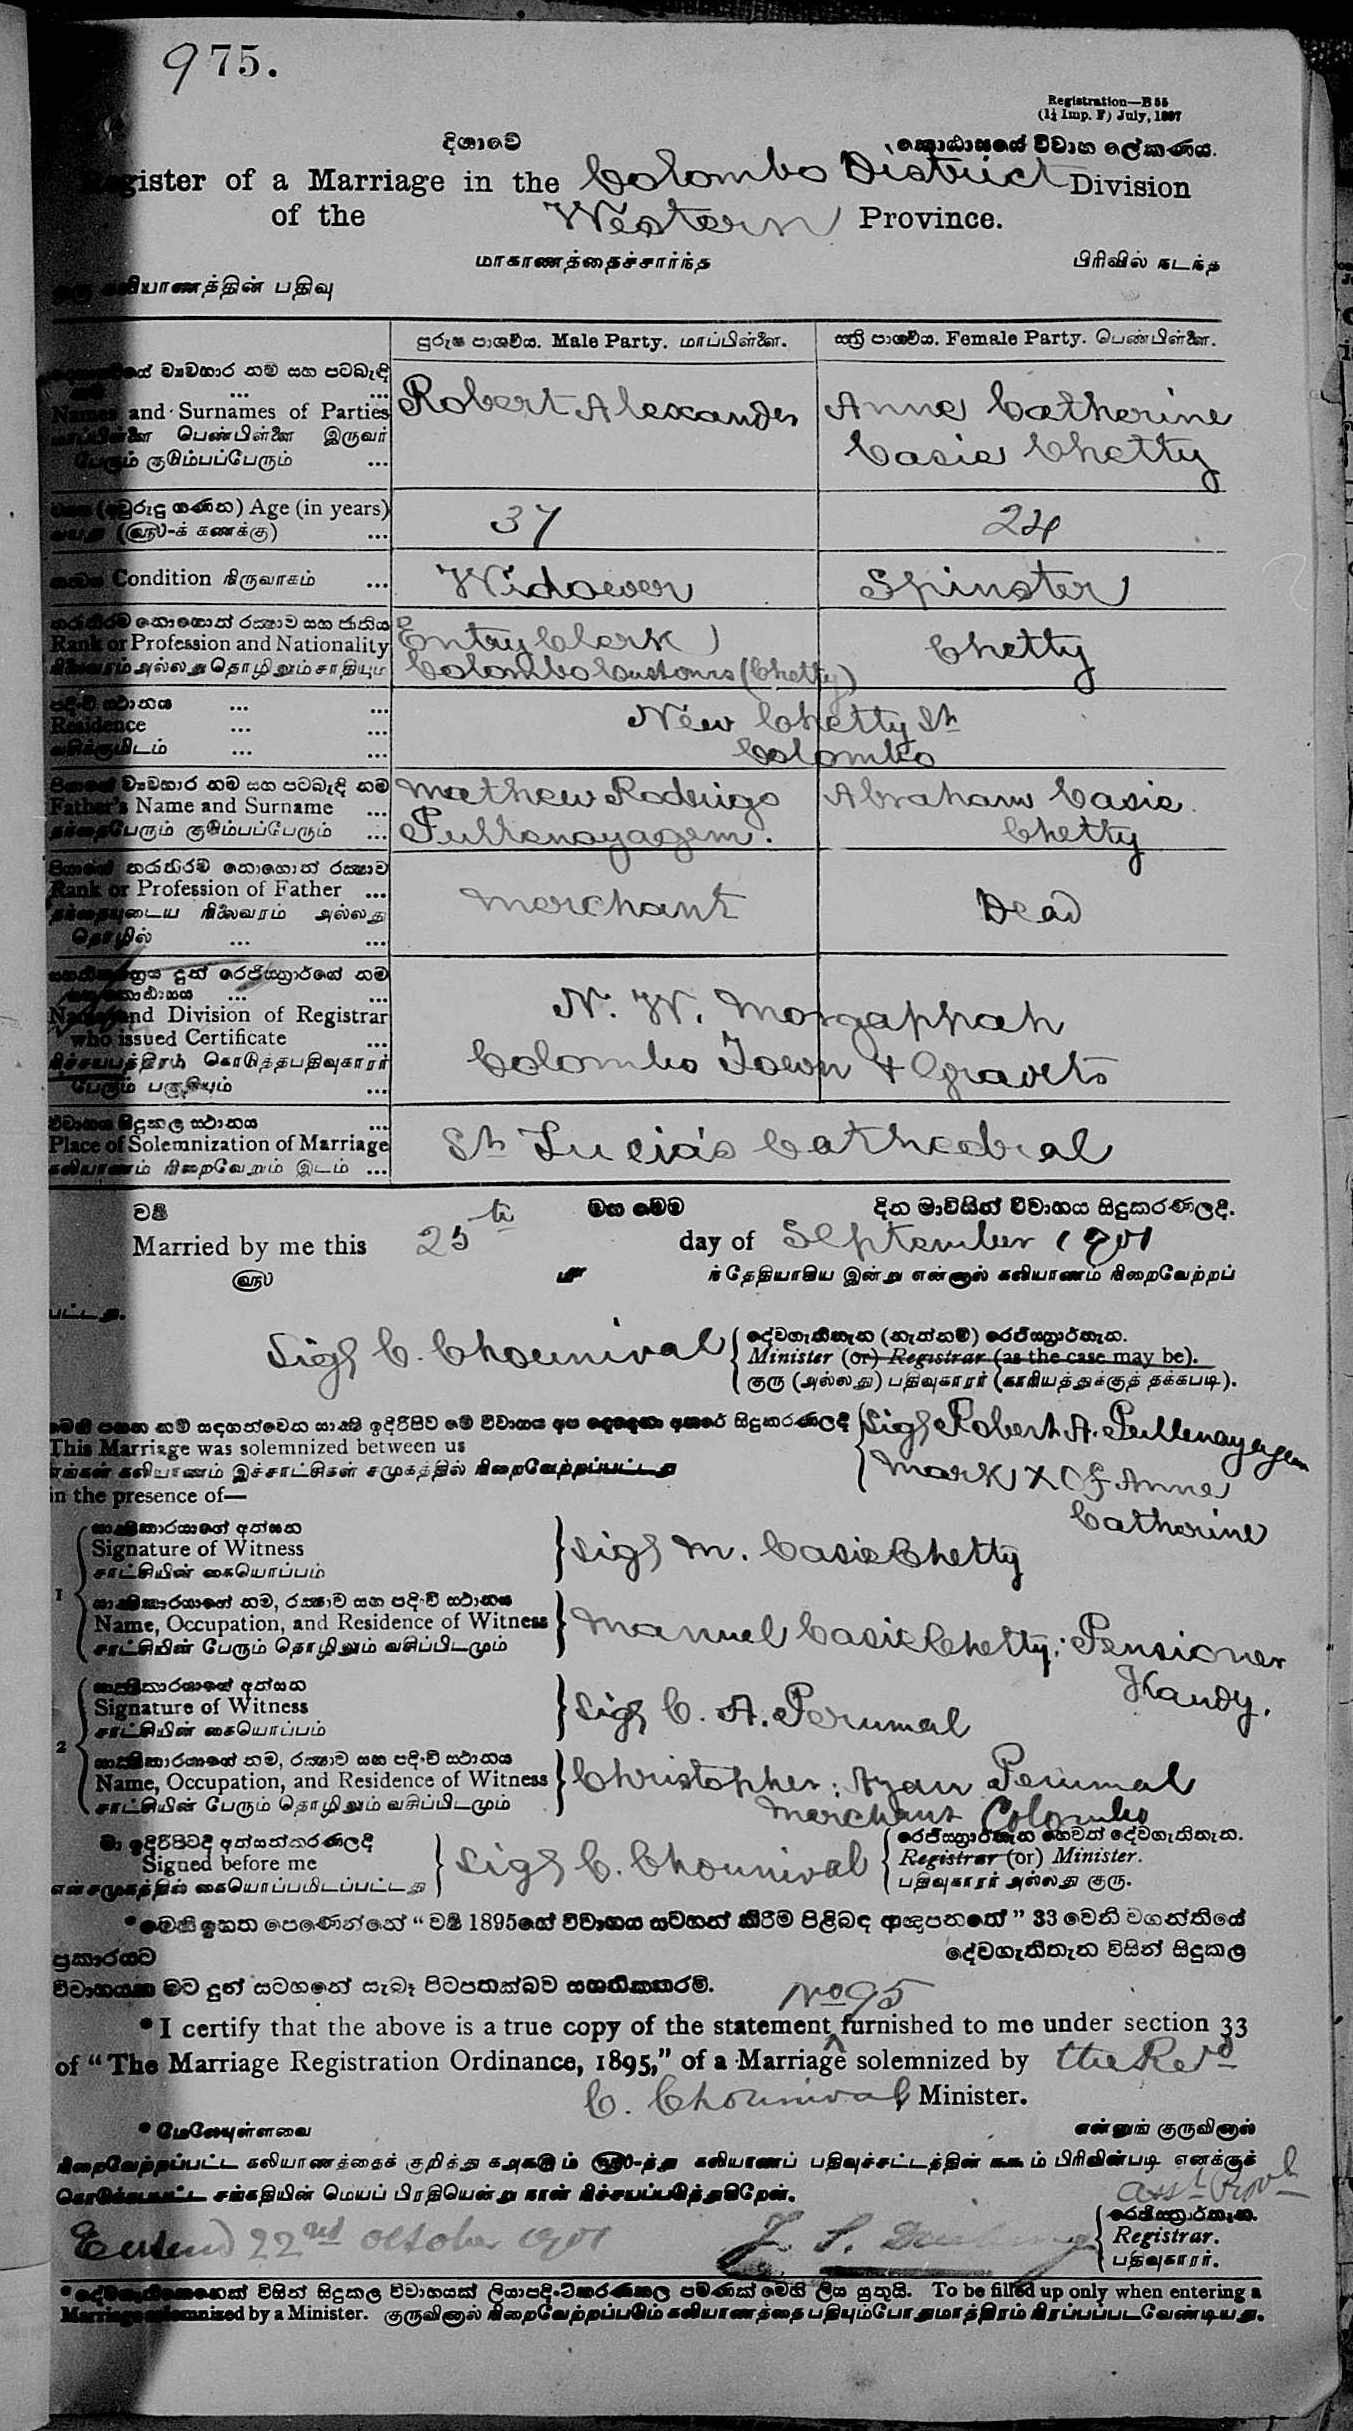 975.
Registration—B 55
(1¼ Imp. F) July, 1897
දිශාවේ කොඨාසයේ විවාහ ලේකණය.
Register of a Marriage in the Colombo District Division
of the Western Province.
மாகாணத்தைச்சார்ந்த பிரிவில் நடந்த
ஒரு கலியாணத்தின் பதிவு
පුරුෂ පාශ්වීය. Male Party. மாப்பிள்ளை. ස්ත්‍රී පාශ්වීය. Female Party. பெண்பிள்ளை.
ව්‍යවහාර නම් සහ පටබැඳි
Names and Surnames of Parties Robert Alexander Anne Catherine
மாப்பிள்ளை பெண்பிள்ளை இருவர் Casie Chetty
பேரும் குடும்பப்பேரும் ...
(අවුරුදු ගණන) Age (in years) 37 24
வயது (வருஷ)-க் கணக்கு) ...
Condition நிருவாகம் ... Widower Spinster
තරාතිරම නොහොත් රක්‍ෂාව සහ ජාතිය Entry Clerk
Rank or Profession and Nationality Colombo Customs (Chetty) Chetty
நிலைவரம் அல்லது தொழிலும் சாதியும்
පදිංචි ස්ථානය ... ...
Residence ... ... New Chetty St
வசிக்குமிடம் ... ... Colombo
පියාගේ ව්‍යවහාර නම සහ පටබැඳි නම Mathew Rodrigo Abraham Casie
Father's Name and Surname ... Pullenayagem. Chetty
தந்தைபேரும் குடும்பப்பேரும் ...
පියාගේ තරාතිරම නොහොත් රක්‍ෂාව
Rank or Profession of Father ... Merchant Dead
தந்தையுடைய நிலைவரம் அல்லது
தொழில் ... ...
දුන් රෙජිස්ත්‍රාර්ගේ නම
Name and Division of Registrar N. W. Morgappah
who issued Certificate ... Colombo Town & Gravets
நிச்சயபத்திரம் கொடுத்தபதிவுகாரர்
பேரும் பகுதியும் ...
විවාහය සිදුකල ස්ථානය ...
Place of Solemnization of Marriage St Lucia's Cathedral
கலியாணம் நிறைவேறும் இடம் ...
වර්‍ෂ මස මෙම දින මාවිසින් විවාහය සිදුකරණලදි.
Married by me this 25th day of September 1901
ந் தேதியாகிய இன்று என்னால் கலியாணம் நிறைவேற்றப்
பட்டது.
දේවගැතිතැන (නැත්නම්) රෙජිස්ත්‍රාර්තැන.
Sigd C. Chounival Minister (or) Registrar (as the case may be).
குரு (அல்லது) பதிவுகாரர் (காரியத்துக்குத் தக்கபடி).
මෙහි පහත නම් සඳහන්වෙන සාක්‍ෂි ඉදිරිපිට මේ විවාහය අප දෙදෙනා අතරේ සිදුකරණලදි Sigd Robert A. Pullenayagem
This Marriage was solemnized between us
எங்கள் கலியாணம் இச்சாட்சிகள் சமுகத்தில் நிறைவேற்றப்பட்டது Mark X of Anne
in the presence of— Catherine
සාක්‍ෂිකාරයාගේ අත්සන
Signature of Witness Sigd M. Casie Chetty
சாட்சியின் கையொப்பம்
1
සාක්‍ෂිකාරයාගේ නම, රක්‍ෂාව සහ පදිංචි ස්ථානය
Name, Occupation, and Residence of Witness Manuel Casie Chetty: Pensioner
சாட்சியின் பேரும் தொழிலும் வசிப்பிடமும் Kandy.
සාක්‍ෂිකාරයාගේ අත්සන
Signature of Witness Sigd C. A. Perumal
சாட்சியின் கையொப்பம்
2
සාක්‍ෂිකාරයාගේ නම, රක්‍ෂාව සහ පදිංචි ස්ථානය
Name, Occupation, and Residence of Witness Christopher: Perumal
சாட்சியின் பேரும் தொழிலும் வசிப்பிடமும் Merchant Colombo
මා ඉදිරිපිටදි අත්සන්කරණලදි රෙජිස්ත්‍රාර්තැන හෙවත් දේවගැතිතැන.
Signed before me Sigd C. Chounival Registrar (or) Minister.
என் சமுகத்தில் கையொப்பமிடப்பட்டது பதிவுகாரர் அல்லது குரு.
*මෙහි ඉහත පෙණෙන්නේ “ වර්‍ෂ 1895ගේ විවාහය සටහන් කිරීම පිළිබඳ ආඥාපනතේ ” 33 වෙනි වගන්තියේ
ප්‍රකාරයට දේවගැතිතැන විසින් සිදුකල
විවාහයක මට දුන් සටහනේ සැබෑ පිටපතක්බව සහතිකකරමි.
No 95
*I certify that the above is a true copy of the statement ^ furnished to me under section 33
of “The Marriage Registration Ordinance, 1895,” of a Marriage solemnized by the Revd
C. Chounival, Minister.
* மேலேயுள்ளவை என்னுங் குருவினால்
நிறைவேற்றப்பட்ட கலியாணத்தைக் குறித்து கலியாணப் பதிவுச்சட்டத்தின் ம் பிரிவின்படி எனக்குக்
கொடுக்கப்பட்ட சங்கதியின் மெய்ப் பிரதியென்று நான் நிச்சயப்படுத்துகிறேன்.
Asst Provl
රෙජිස්ත්‍රාර්තැන.
22nd October 1901 Registrar.
பதிவுகாரர்.
විසින් සිදුකල විවාහයක් ලියාපදිංචිකරණකල පමණක් මෙහි ලිය යුතුයි. To be filled up only when entering a
Marriage solemnized by a Minister. குருவினால் நிறைவேற்றப்படும் கலியாணத்தை பதியும்போதுமாத்திரம் நிரப்பப்படவேண்டியது.